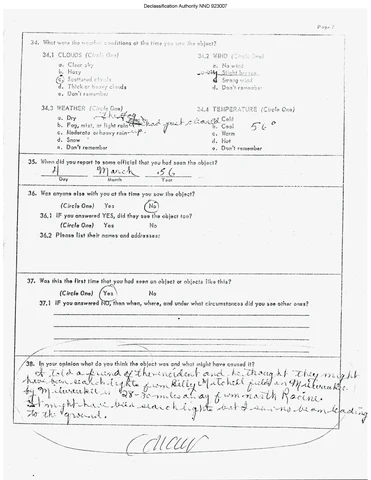 Declassification Authority NND 923007
Page 7
34. What were the weather conditions at the time you saw the object?
34.1 CLOUDS (Circle One)
34.2 WIND (Circle One)
a. Clear sky
a. No wind
b. Hazy
b. Slight breeze
c. Scattered clouds
c. Strong wind
d. Thick or heavy clouds
d. Don't remember
e. Don't remember
34.3 WEATHER (Circle One)
34.4 TEMPERATURE (Circle One)
a. Dry
a. Cold
b. Fog, mist, or light rain
had just cleared
b. Cool
56°
c. Moderate or heavy rain
up.
c. Warm
d. Snow
d. Hot
e. Don't remember
e. Don't remember
35. When did you report to some official that you had seen the object?
March 56
Day Month Year
36. Was anyone else with you at the time you saw the object?
(Circle One) Yes No
36.1 IF you answered YES, did they see the object too?
(Circle One) Yes No
36.2 Please list their names and addresses:
37. Was this the first time that you had seen an object or objects like this?
(Circle One) Yes No
37.1 IF you answered NO, then when, where, and under what circumstances did you see other ones?
38. In your opinion what do you think the object was and what might have caused it?
I told a friend of the incident and he thought they might
have been search lights from Billy Mitchell field in Milwaukee
by Milwaukee is 28-30 miles away from north Racine.
It might have been search lights but I saw no beam leading
to the ground.